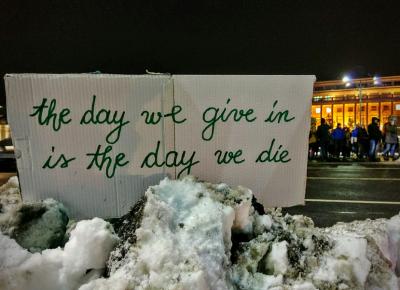 the day we give in
is the day we die